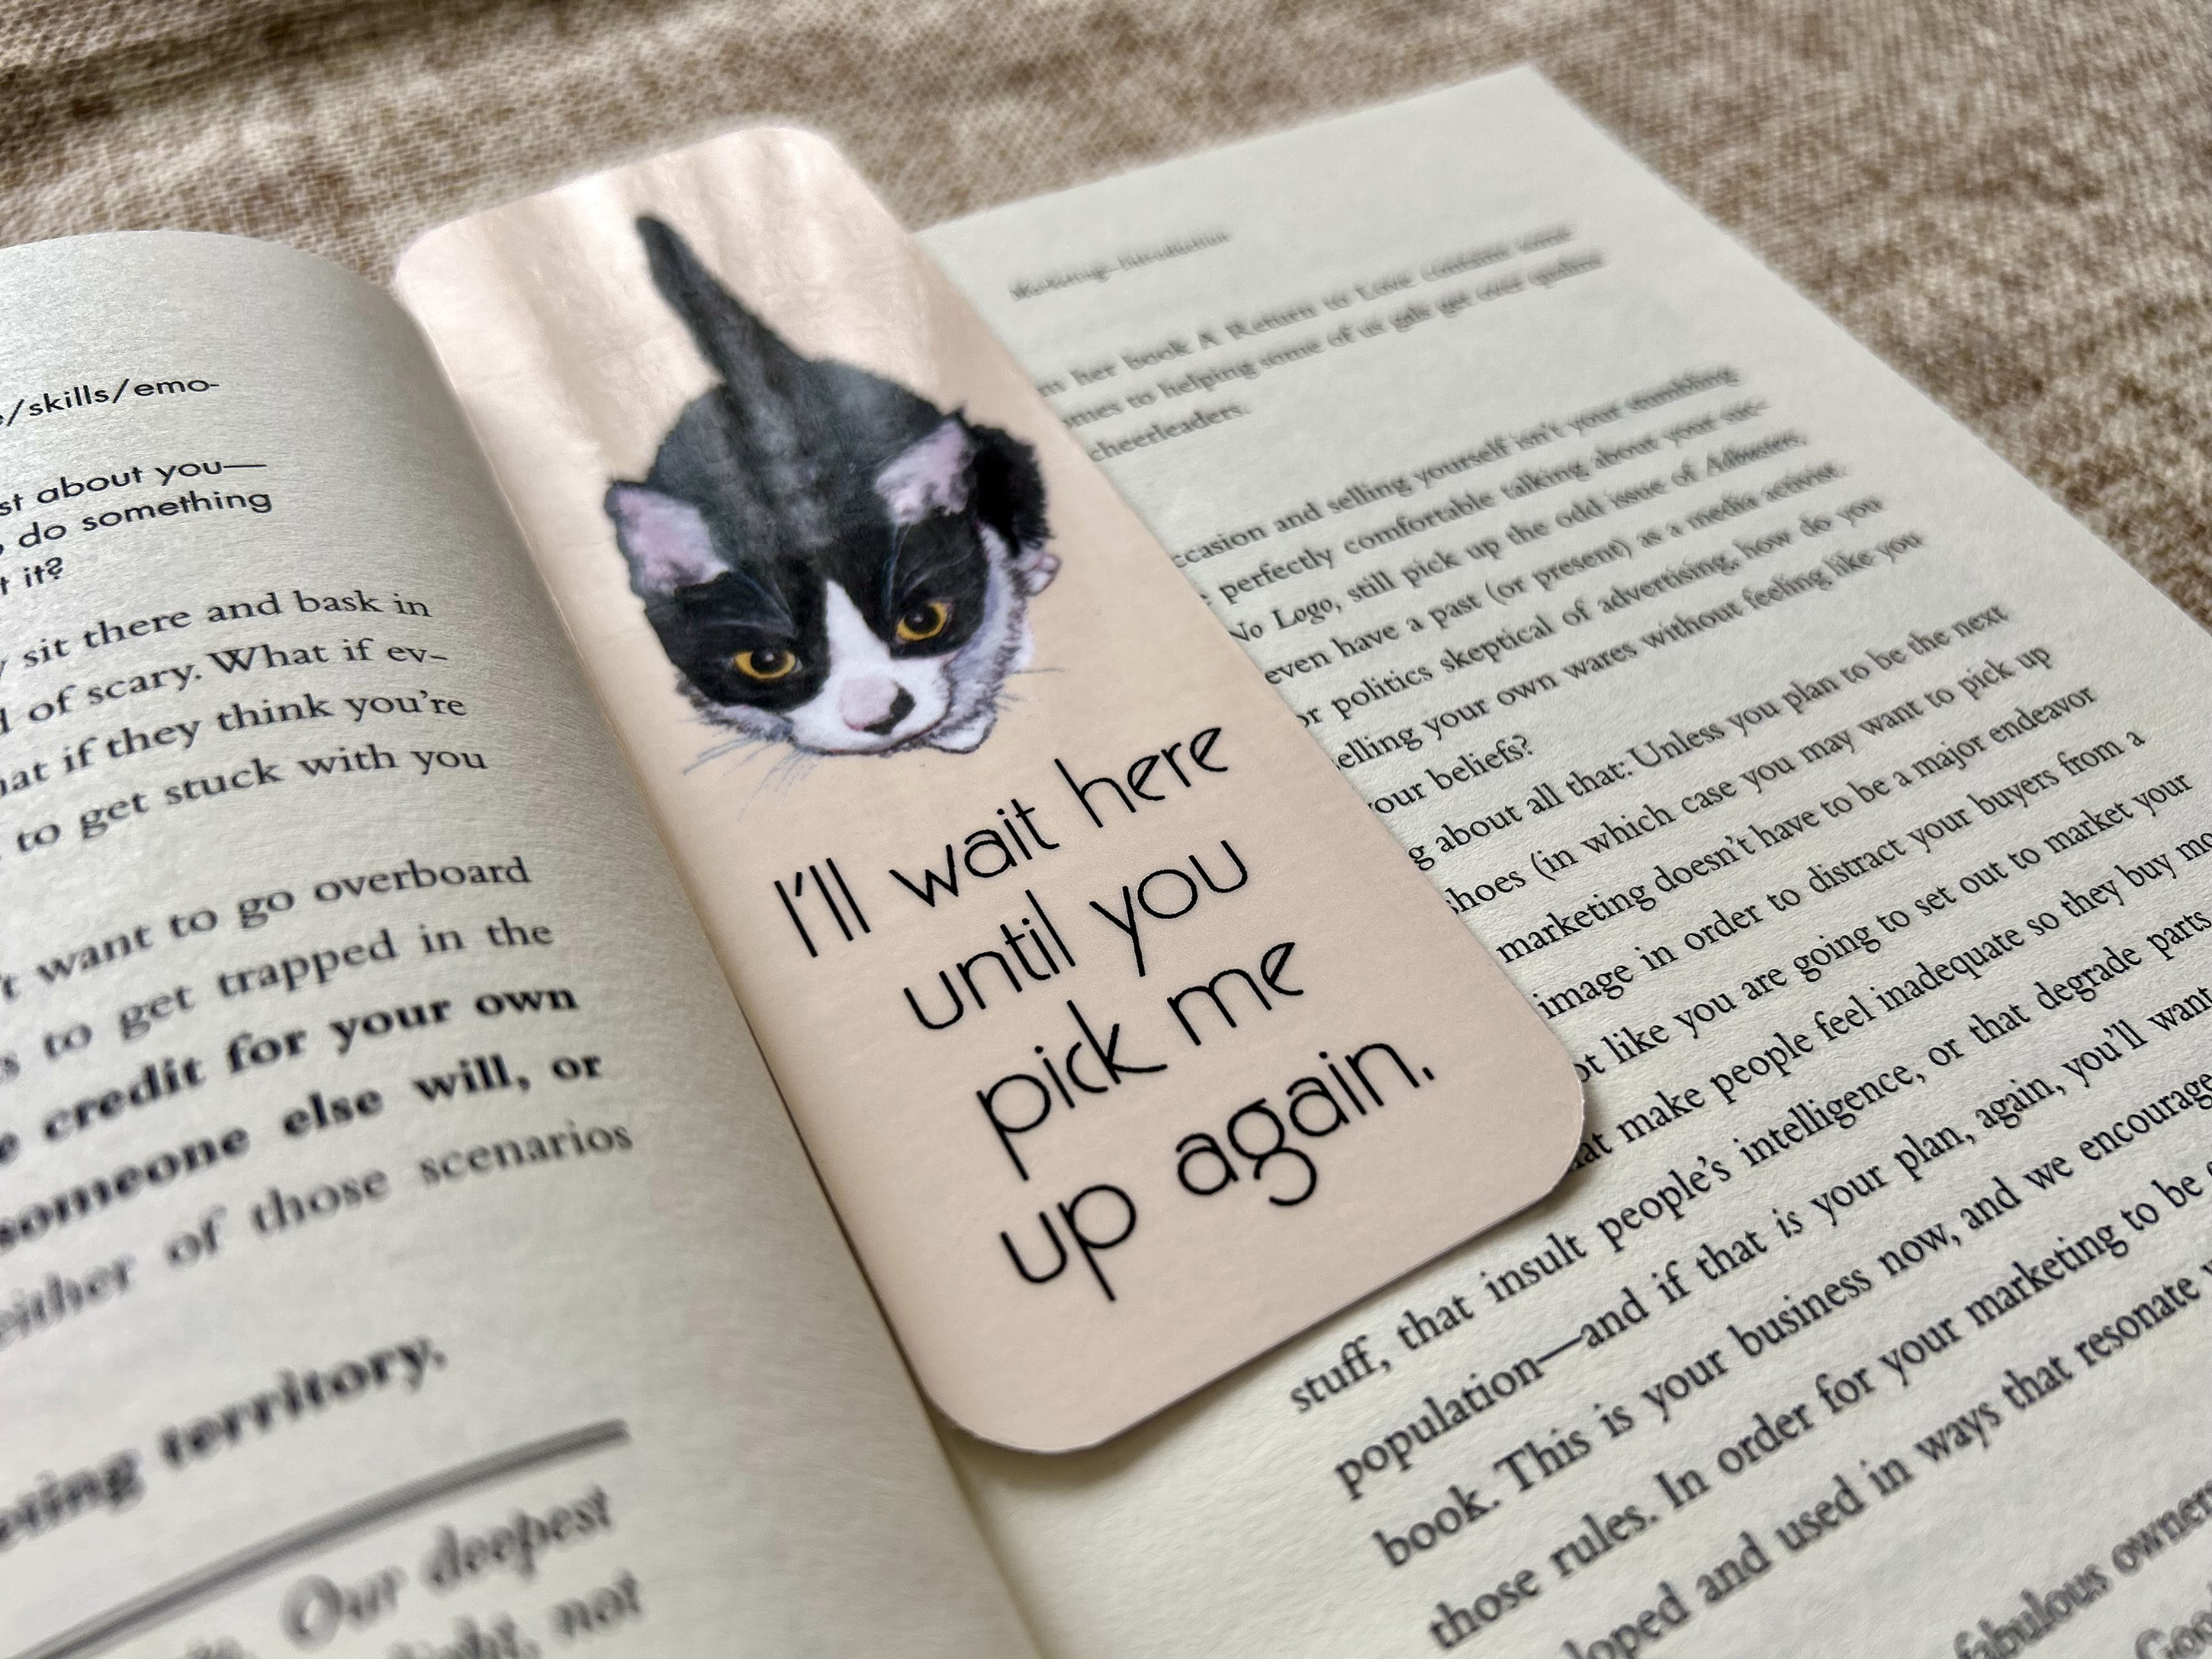 /skills/emo-
st about you—
do something
it?
sit there and bask in
of scary. What if ev-
if they think you're
to get stuck with you
want to go overboard
to get trapped in the
credit for your own
someone else will, or
either of those scenarios
territory.
Our deepest
not
I'll wait here
until you
pick me
up again.
her book A Return to Love contains some
to helping some of us gals get over
cheerleaders.
and selling yourself isn't your stumbling
perfectly comfortable talking about your suc-
No Logo, still pick up the odd issue of Adbusters,
even have a past (or present) as a media activist.
or politics skeptical of advertising, how do you
your own wares without feeling like you
your beliefs?
about all that: Unless you plan to be the next
shoes (in which case you may want to pick up
marketing doesn't have to be a major endeavor
image in order to distract your buyers from a
like you are going to set out to market your
make people feel inadequate so they buy mo
stuff, that insult people's intelligence, or that degrade parts
population—and if that is your plan, again, you'll want
book. This is your business now, and we encourage
those rules. In order for your marketing to be
loped and used in ways that resonate
fabulous owner